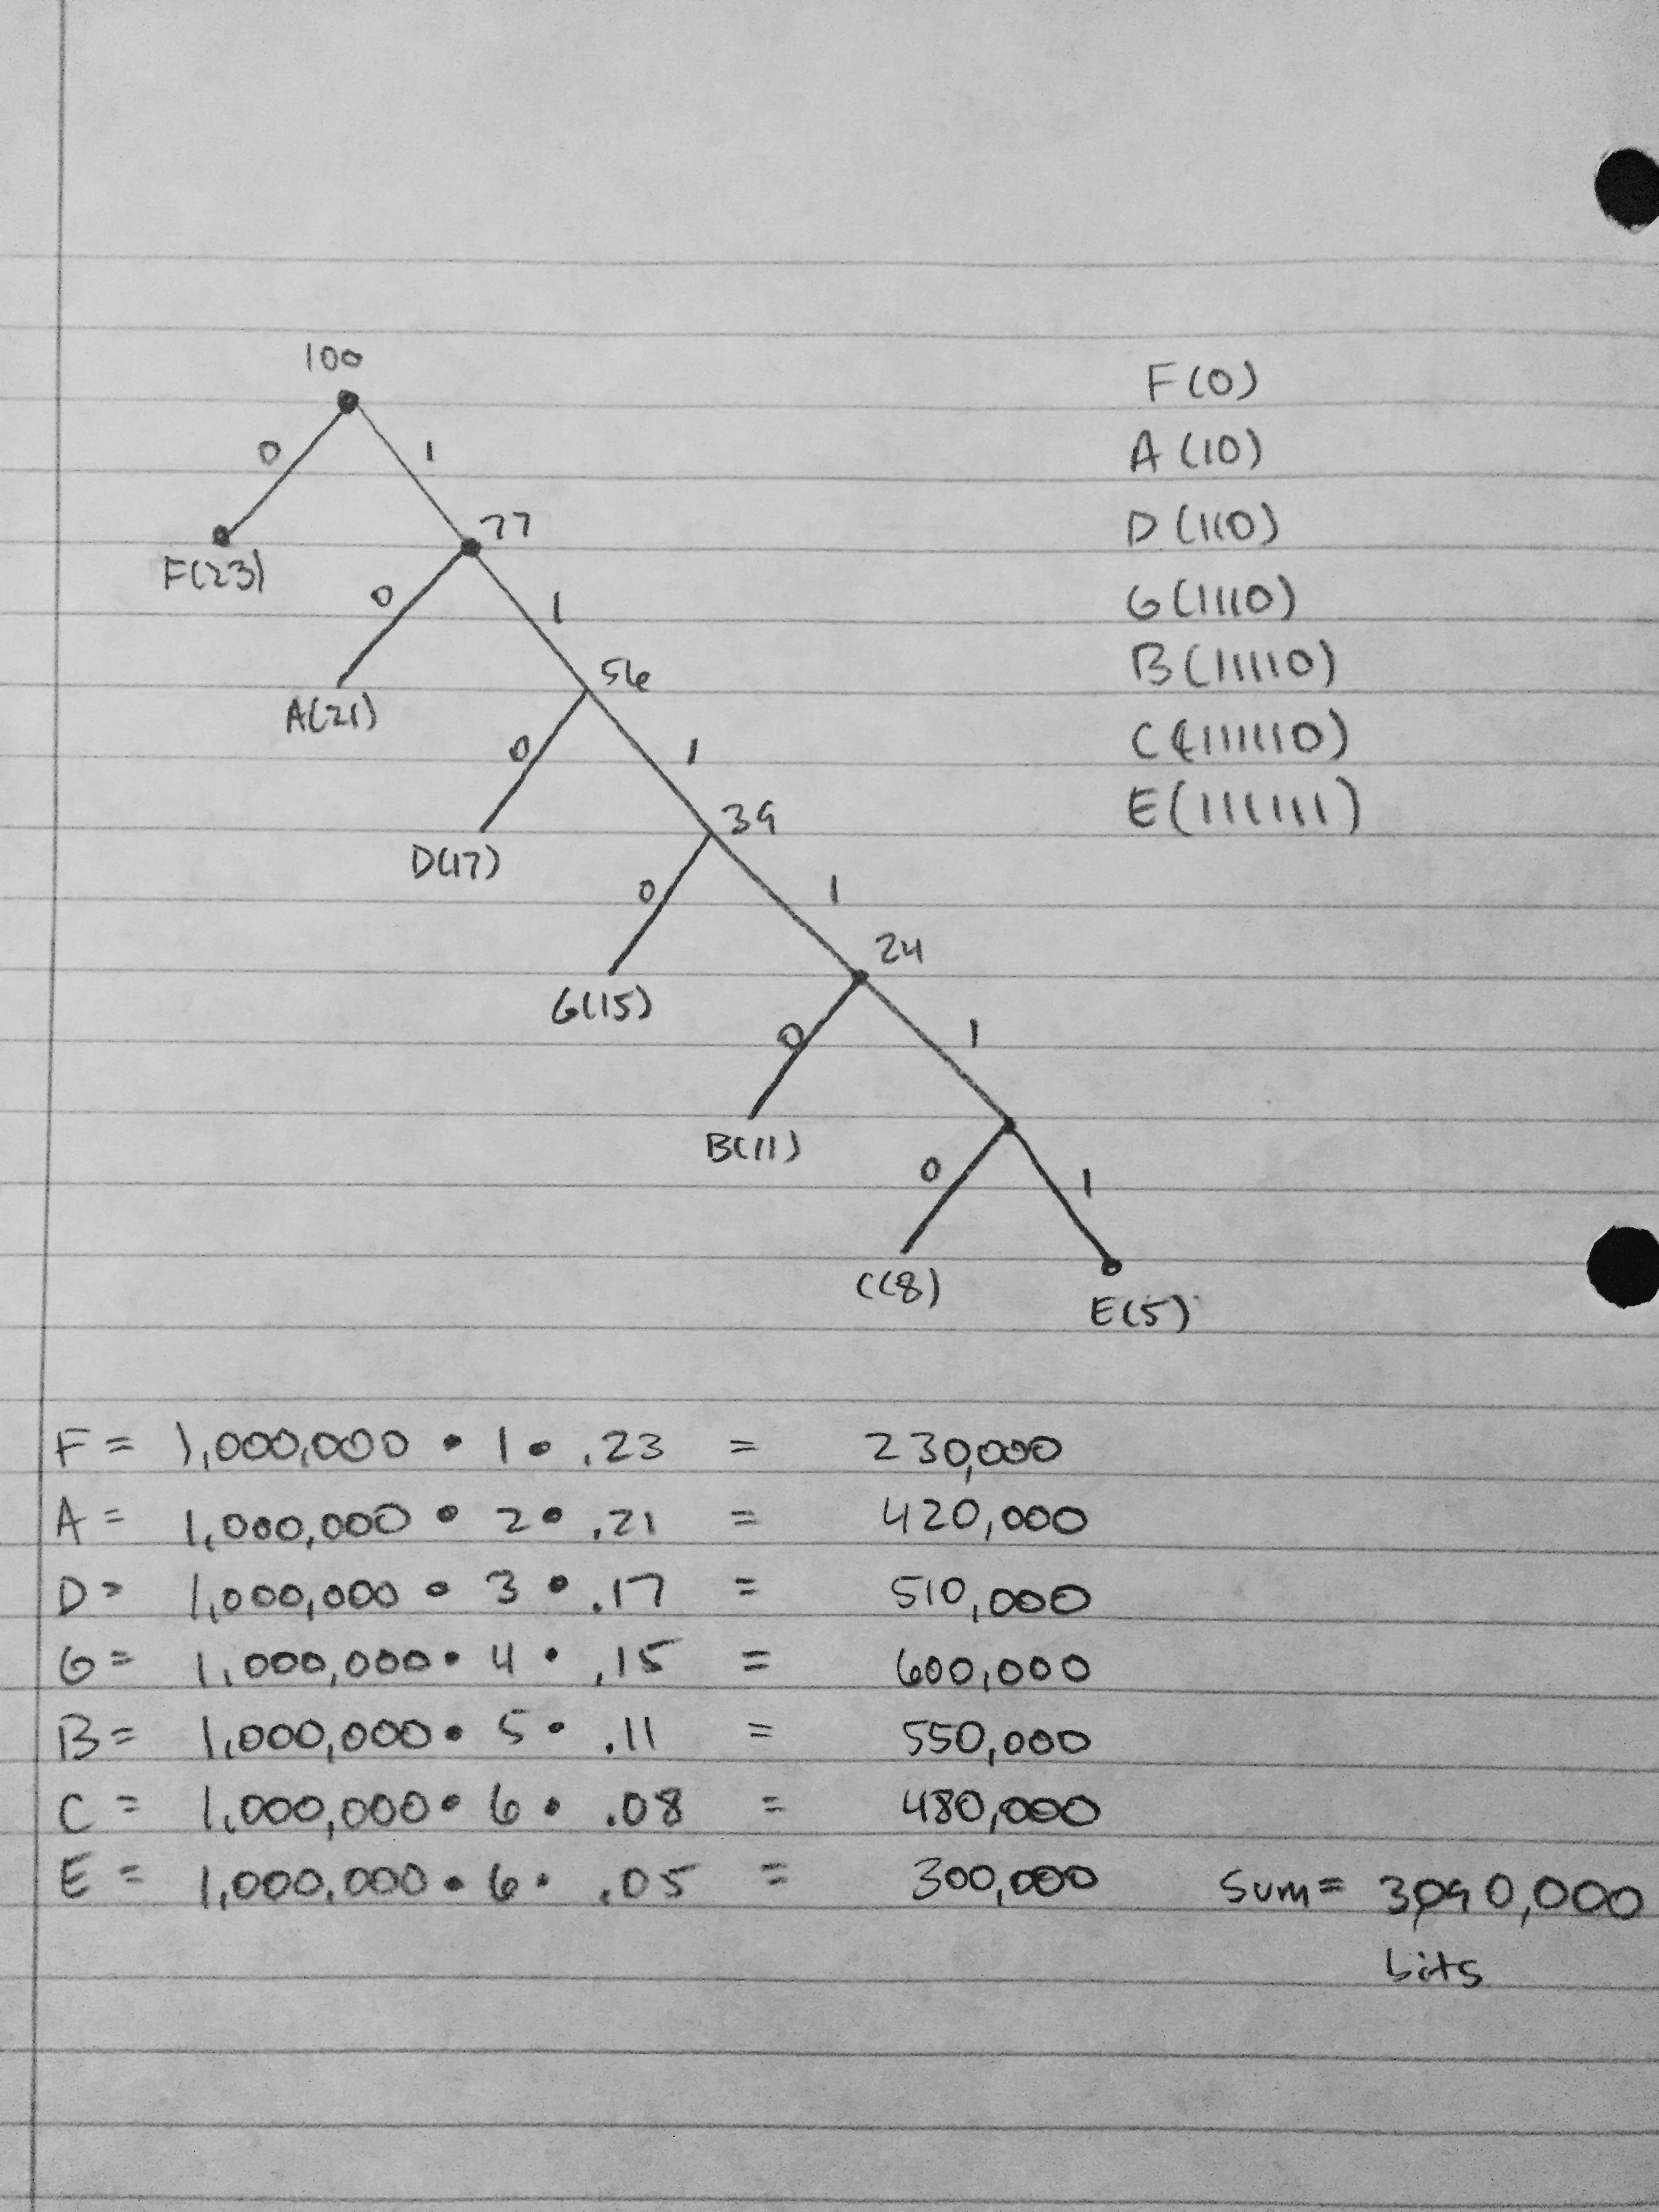 100
0 1
77
F(23)
0 1
56
A(21)
0 1
39
D(17)
0 1
24
G(15)
0 1
B(11)
0 1
C(8)
E(5)
F(0)
A(10)
D(110)
G(1110)
B(11110)
C(111110)
E(111111)
F = 1,000,000 • 1 • .23 = 230,000
A = 1,000,000 • 2 • .21 = 420,000
D = 1,000,000 • 3 • .17 = 510,000
G = 1,000,000 • 4 • .15 = 600,000
B = 1,000,000 • 5 • .11 = 550,000
C = 1,000,000 • 6 • .08 = 480,000
E = 1,000,000 • 6 • .05 = 300,000 Sum = 3,090,000
bits